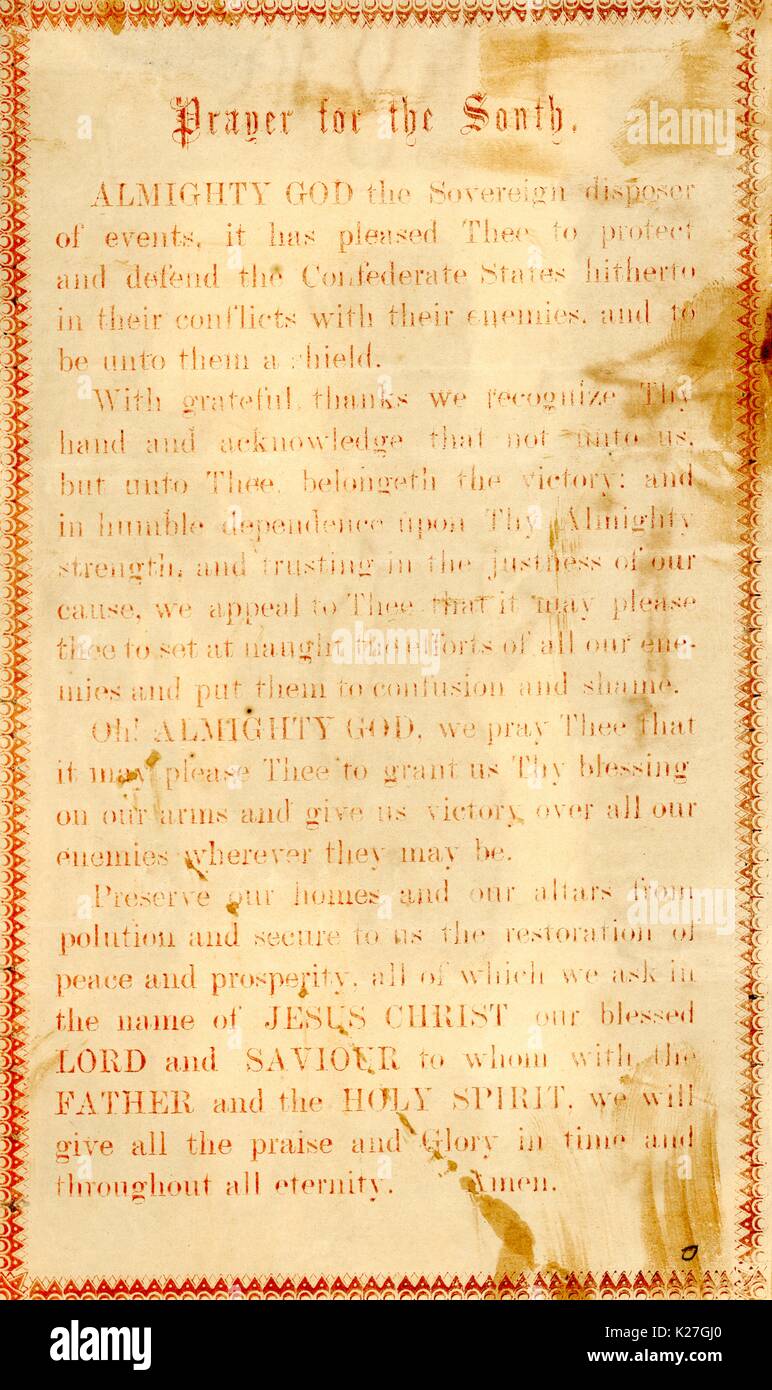 Prayer for the South.
ALMIGHTY GOD the Sovereign disposer
of events, it has pleased Thee to protect
and defend the Confederate States hitherto
in their conflicts with their enemies, and to
be unto them a shield.
With grateful thanks we recognize Thy
hand and acknowledge that not unto us,
but unto Thee, belongeth the victory; and
in humble dependence upon Thy Almighty
strength, and trusting in the justness of our
cause, we appeal to Thee that it may please
thee to set at naught the efforts of all our ene-
mies and put them to confusion and shame.
Oh! ALMIGHTY GOD, we pray Thee that
it may please Thee to grant us Thy blessing
on our arms and give us victory over all our
enemies wherever they may be.
Preserve our homes and our altars from
polution and secure to us the restoration of
peace and prosperity, all of which we ask in
the name of JESUS CHRIST our blessed
LORD and SAVIOUR to whom with the
FATHER and the HOLY SPIRIT, we will
give all the praise and Glory in time and
throughout all eternity. Amen.
alamy stock photo
alamy
Image ID: K27GJ0
www.alamy.com